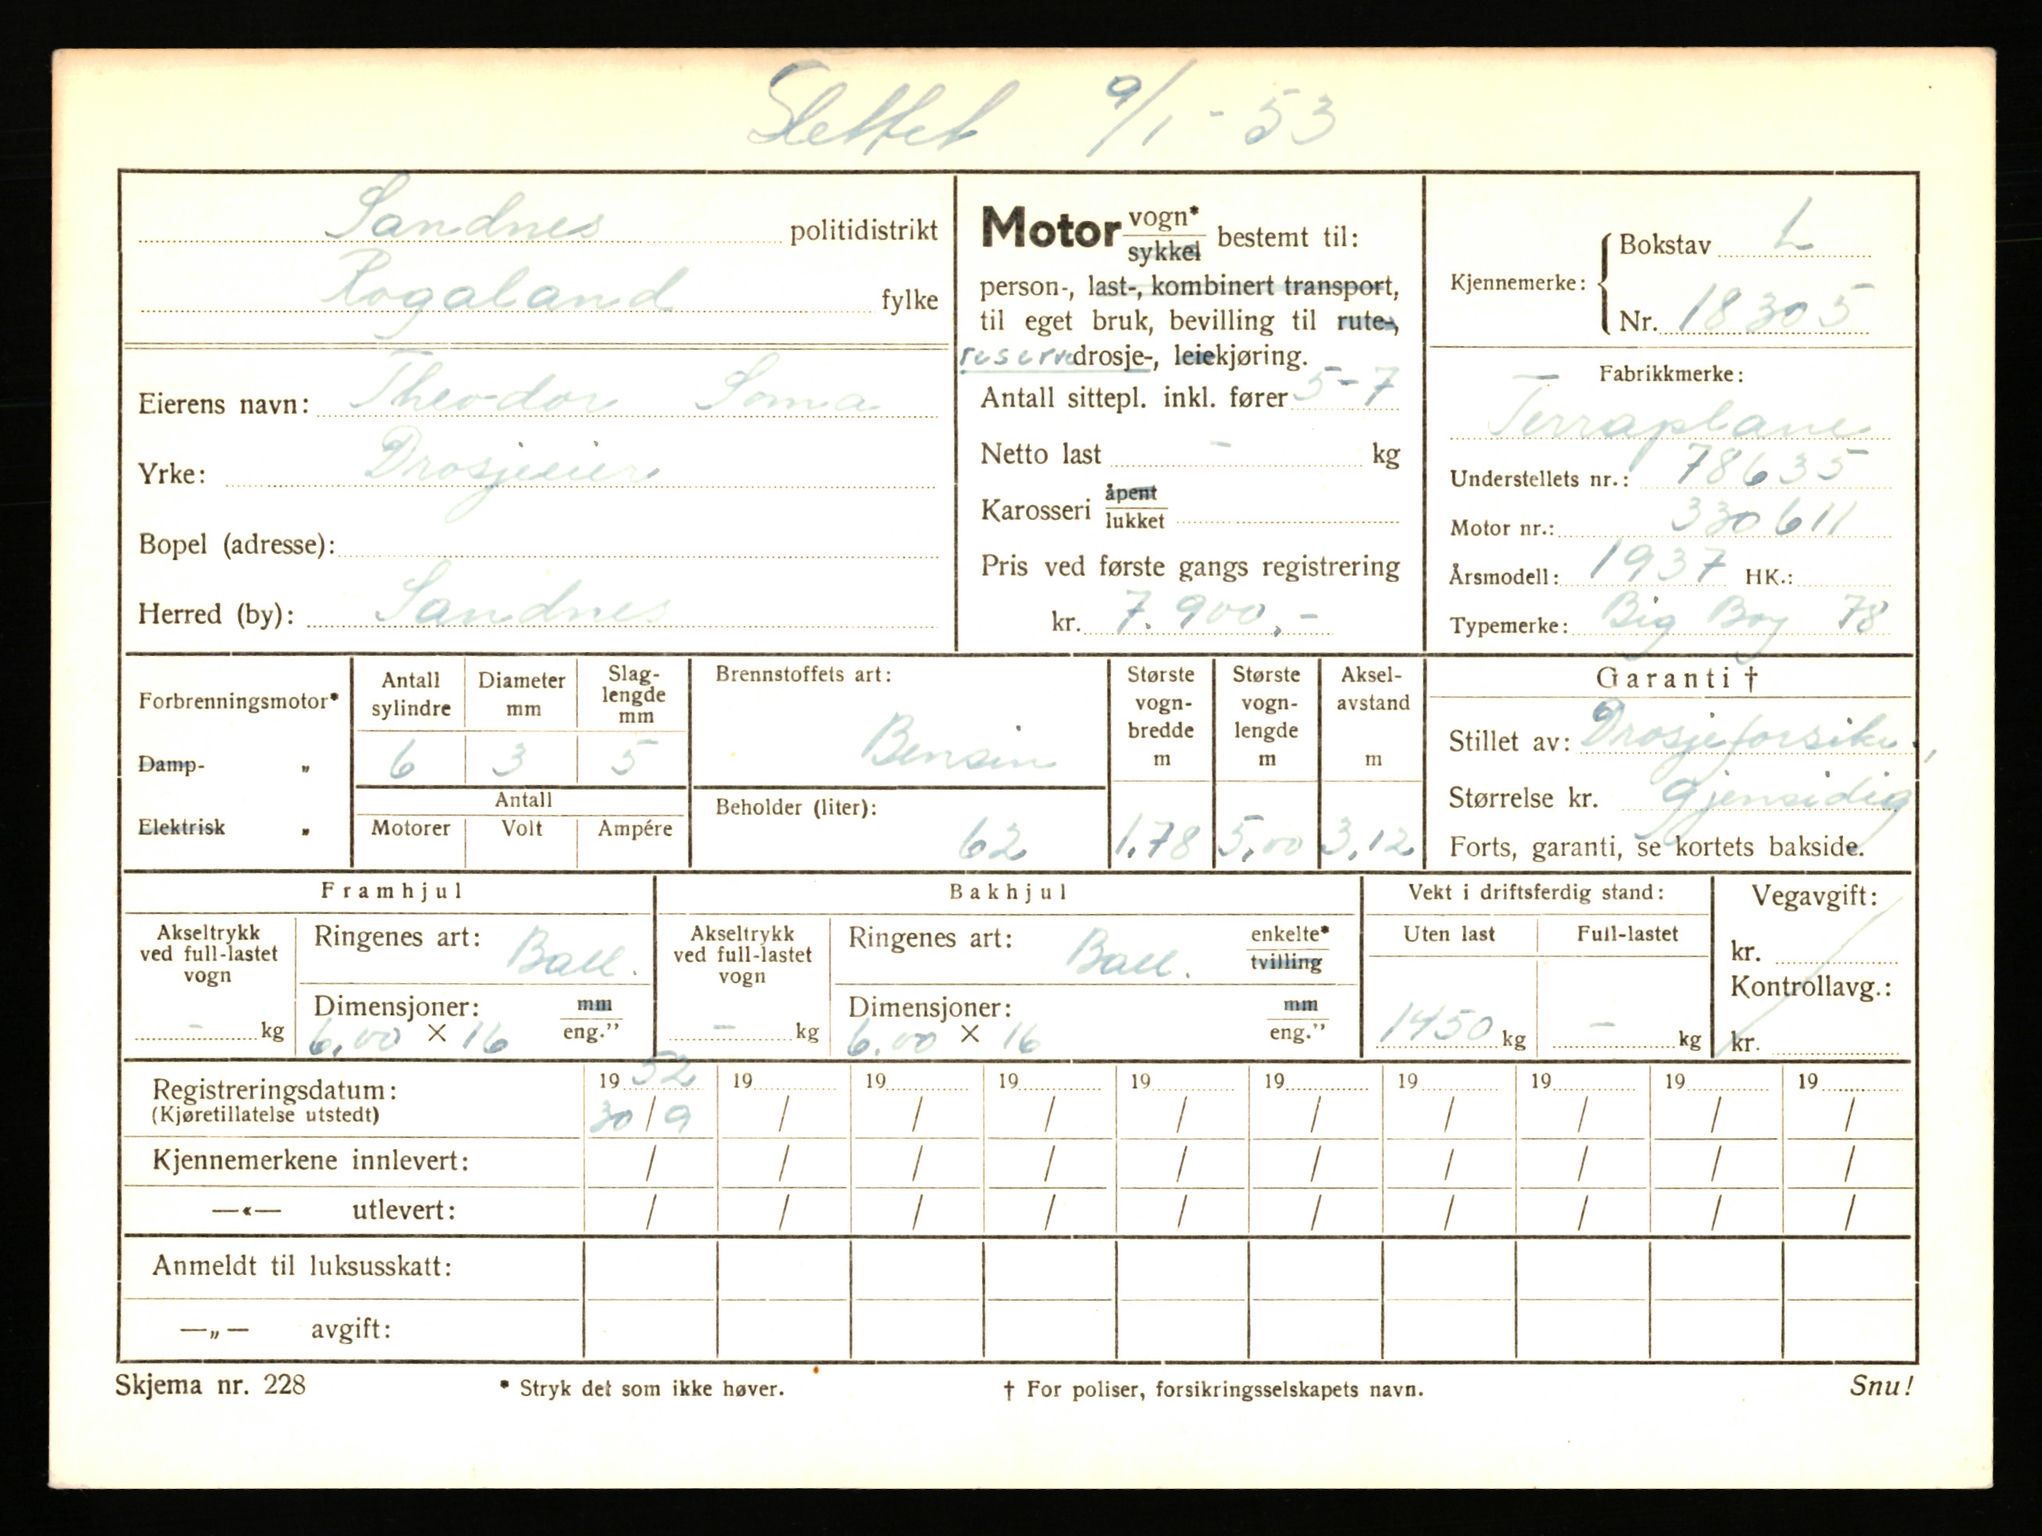 Slettet 9/1 - 53
Sandnes politidistrikt
Rogaland fylke
Eierens navn: Theodor Soma
Yrke: Drosjeeier
Bopel (adresse):
Herred (by): Sandnes
Motor vogn* / sykkel bestemt til:
person-, last-, kombinert transport,
til eget bruk, bevilling til rute-,
reservedrosje-, leiekjøring.
Antall sittepl. inkl. fører 5-7
Netto last - kg
Karosseri åpent / lukket
Pris ved første gangs registrering
kr. 7.900,-
Kjennemerke: Bokstav L
Nr. 18305
Fabrikkmerke:
Terraplane
Understellets nr.: 78635
Motor nr.: 330611
Årsmodell: 1937 HK.:
Typemerke: Big Boy 78
Forbrenningsmotor*
Damp- „
Elektrisk „
Antall sylindre
Diameter mm
Slag-lengde mm
6 3 5
Antall
Motorer Volt Ampére
Brennstoffets art:
Bensin
Beholder (liter):
62
Største vogn-bredde m
1,78
Største vogn-lengde m
5,00
Aksel-avstand m
3,12
Garanti †
Stillet av: Drosjeforsikr.,
Størrelse kr. gjensidig
Forts, garanti, se kortets bakside.
Framhjul
Akseltrykk ved full-lastet vogn
- kg
Ringenes art: Ball.
Dimensjoner: mm / eng.”
6.00 × 16
Bakhjul
Akseltrykk ved full-lastet vogn
- kg
Ringenes art: Ball. enkelte* / tvilling
Dimensjoner: mm / eng.”
6.00 × 16
Vekt i driftsferdig stand:
Uten last Full-lastet
1450 kg - kg
Vegavgift:
kr.
Kontrollavg.:
kr.
Registreringsdatum: 1952 19 19 19 19 19 19 19 19 19
(Kjøretillatelse utstedt) 30/9 / / / / / / / / /
Kjennemerkene innlevert: / / / / / / / / / /
—«— utlevert: / / / / / / / / / /
Anmeldt til luksusskatt:
—„— avgift:
Skjema nr. 228 * Stryk det som ikke høver. † For poliser, forsikringsselskapets navn. Snu!